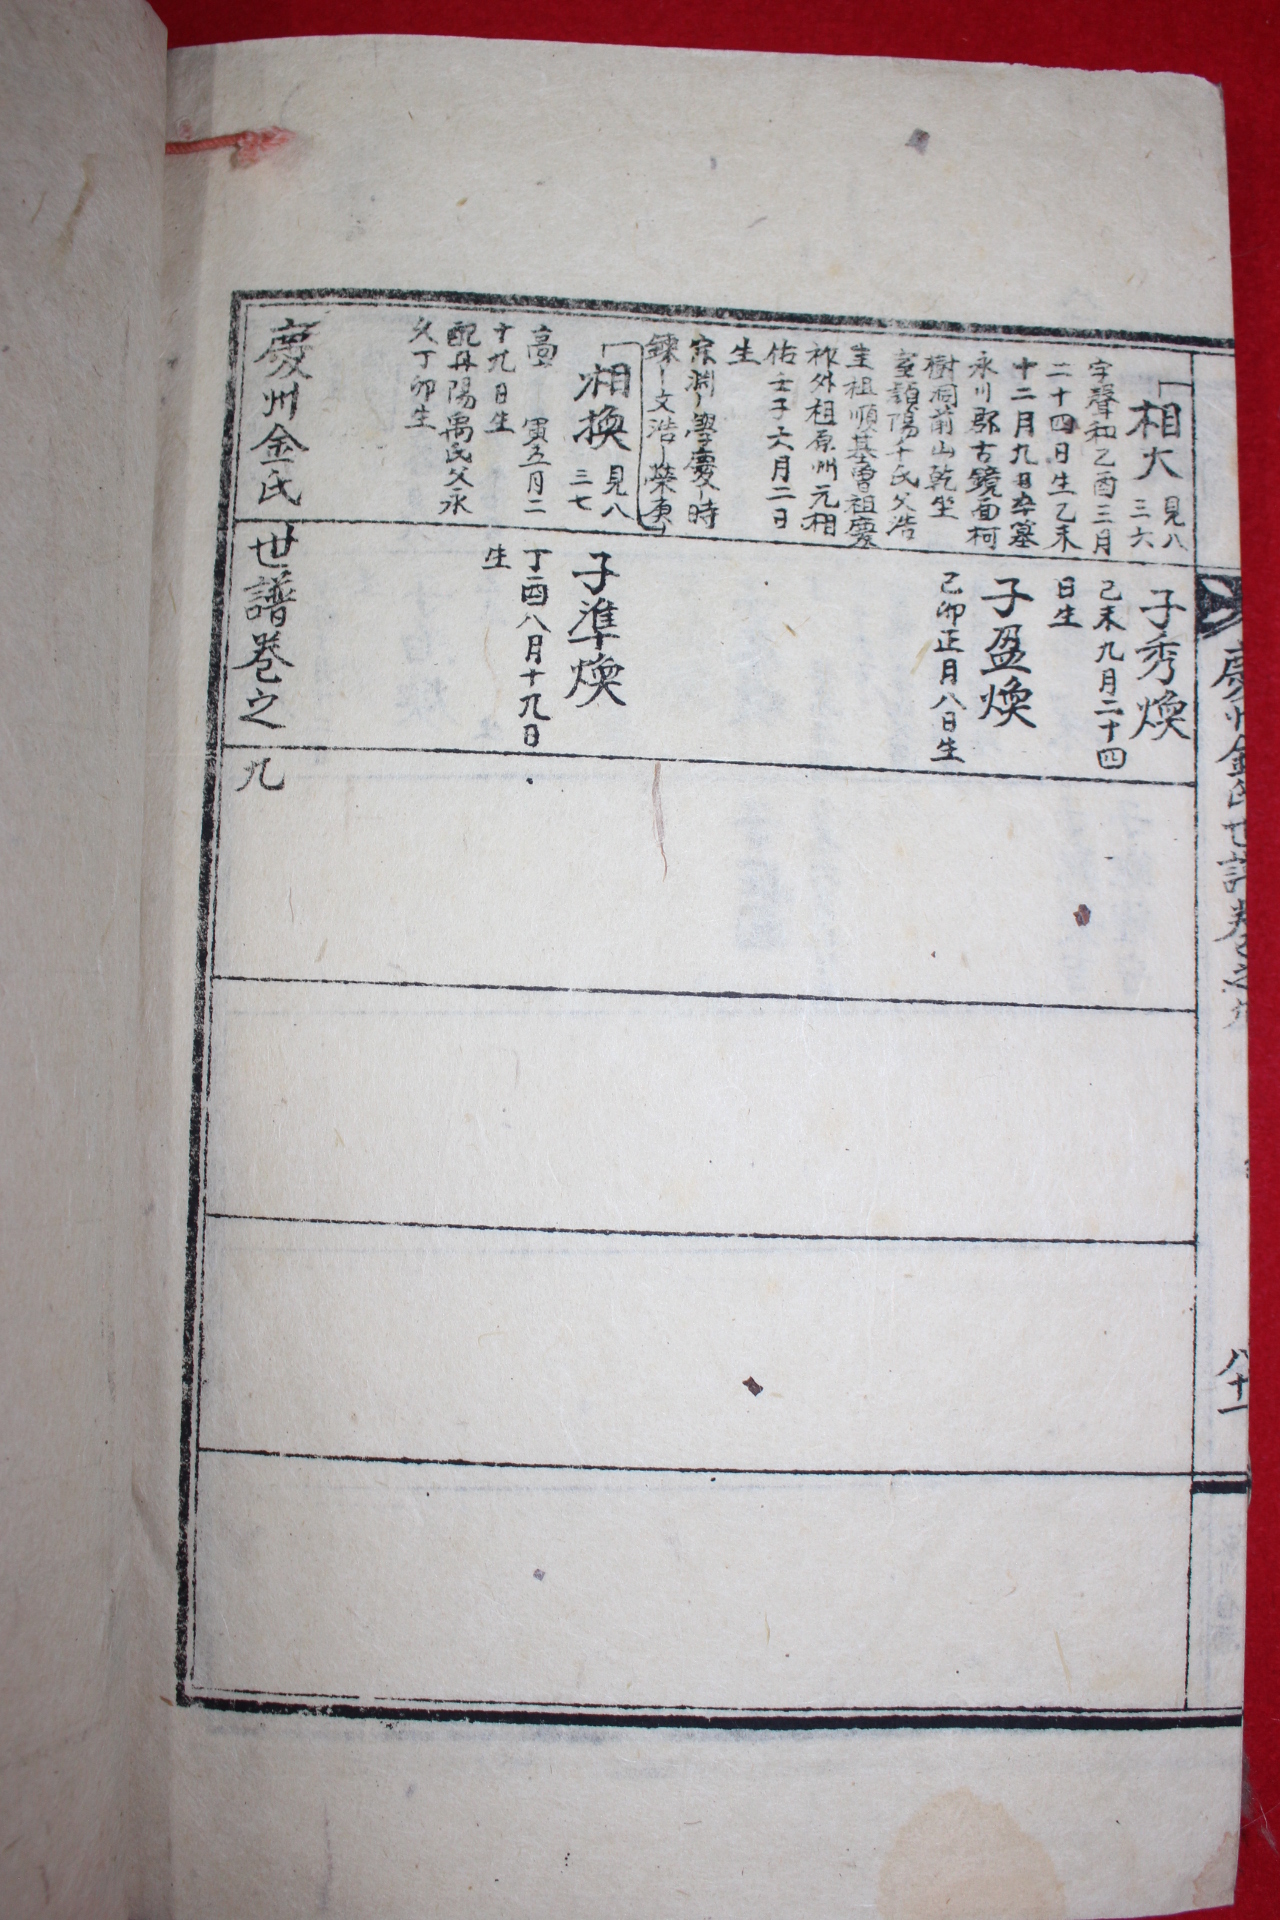 慶州金氏世譜卷之九
八十一
相大 見八三六
字聲和乙酉三月
二十四日生乙未
十二月九日卒墓
永川郡古鏡面柯
樹洞前山乾坐
室潁陽千氏父浩
圭祖順基曾祖慶
祚外祖原州元相
佑壬子六月二日
生
子秀煥
己未九月二十四
日生
子盈煥
己卯正月八日生
宗淵一學慶一時
鍊一文浩一榮庚
相換 見八三七
寅五月二
十九日生
配丹陽禹氏父永
久丁卯生
子準煥
丁酉八月十九日
生
慶州金氏世譜卷之九